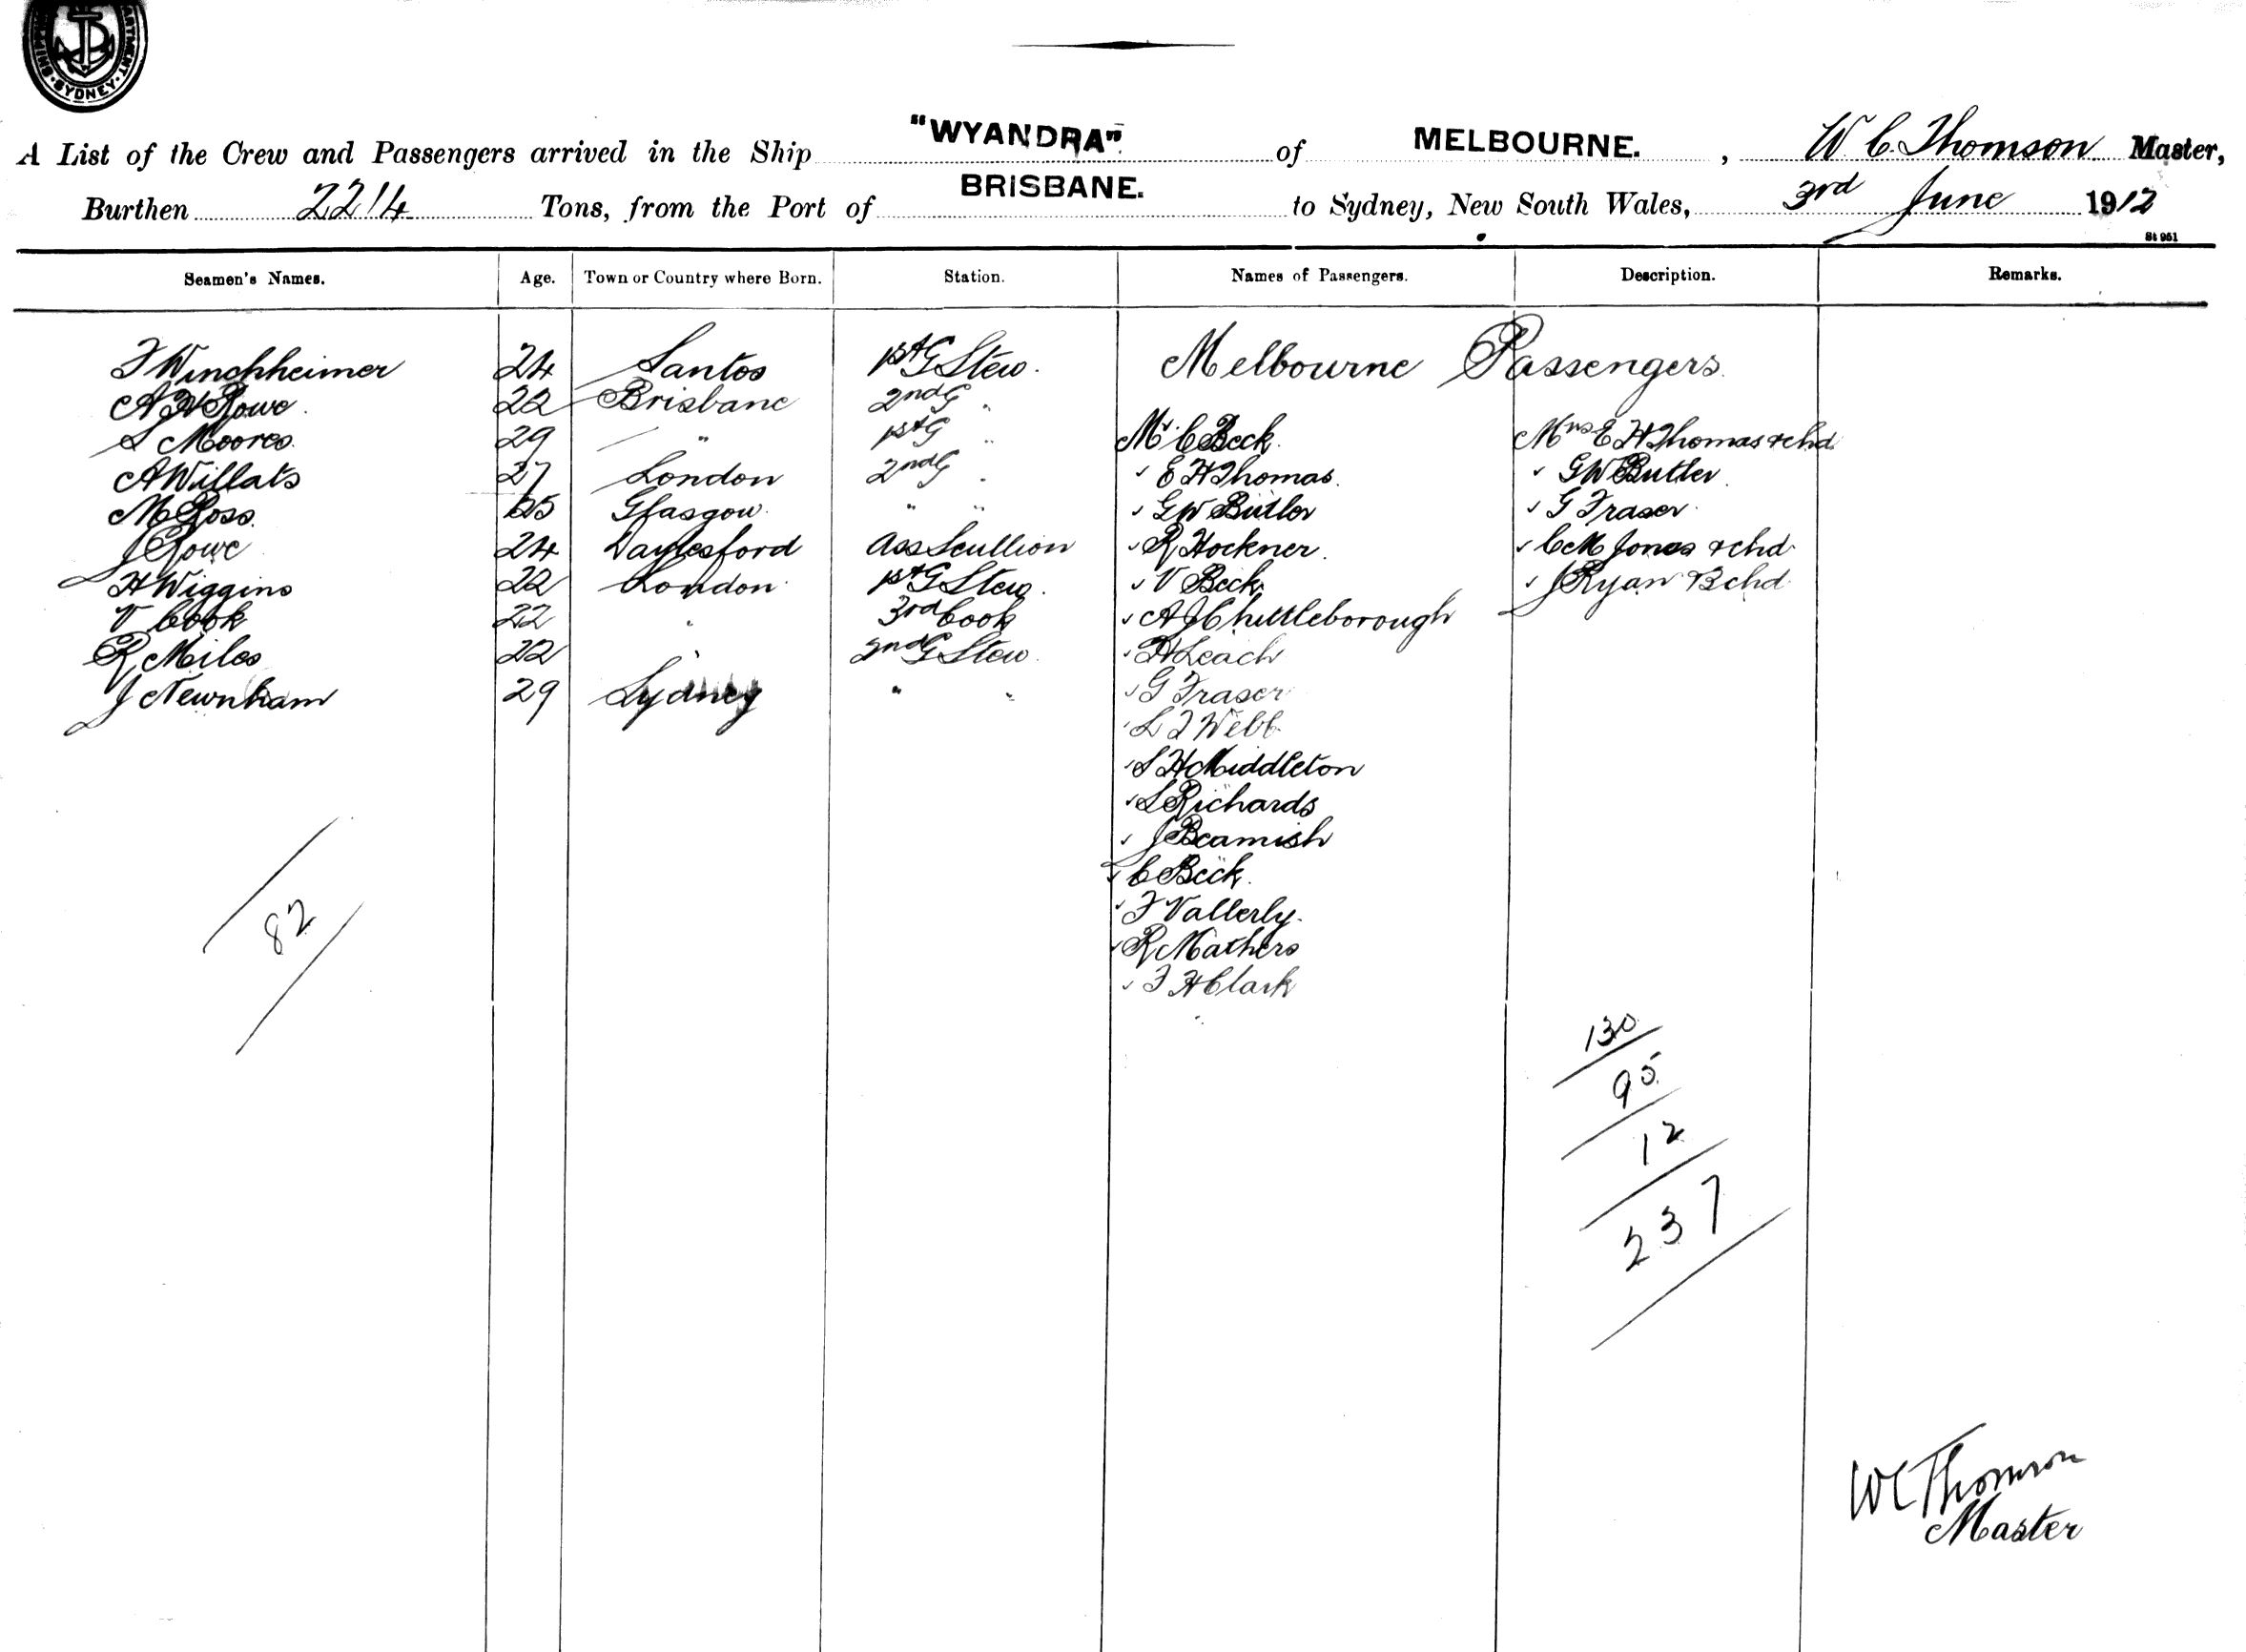 SHIPPING DEPARTMENT · SYDNEY ·
A List of the Crew and Passengers arrived in the Ship "WYANDRA" of MELBOURNE. , W C Thomson Master,
Burthen 2214 Tons, from the Port of BRISBANE. to Sydney, New South Wales, 3rd June 1912
St 961
Seamen's Names. Age. Town or Country where Born. Station. Names of Passengers. Description. Remarks.
Melbourne Passengers
F Winchheimer 24 Santos 1st G Stew.
A H Rowe. 22 Brisbane 2nd G "
S Moores. 29 " 1st G " Mr. C Beck. Mrs E H Thomas & chd
A Willats 27 London 2nd G " ✓ E H Thomas. ✓ G W Butler.
M Ross. 25 Glasgow. " " ✓ G W Butler ✓ G Fraser.
J Rowe 24 Daylesford Ass Scullion ✓ R Hockner. ✓ C M Jones & chd
H Wiggins 22 London 1st G Stew. ✓ V Beck. ✓ J Ryan 3 chd
V Cook 22 " 3rd Cook ✓ A J Chittleborough
R Miles 22 " 2nd G Stew. ✓ H Leach
J Newnham 29 Sydney " " ✓ G Fraser
✓ L J Webb
✓ S H Middleton
✓ L Richards
✓ J Beamish
✓ C Beck.
✓ F Vallerly.
✓ R Mathers
✓ F H Clark
82
130
95
12
237
W C Thomson
Master